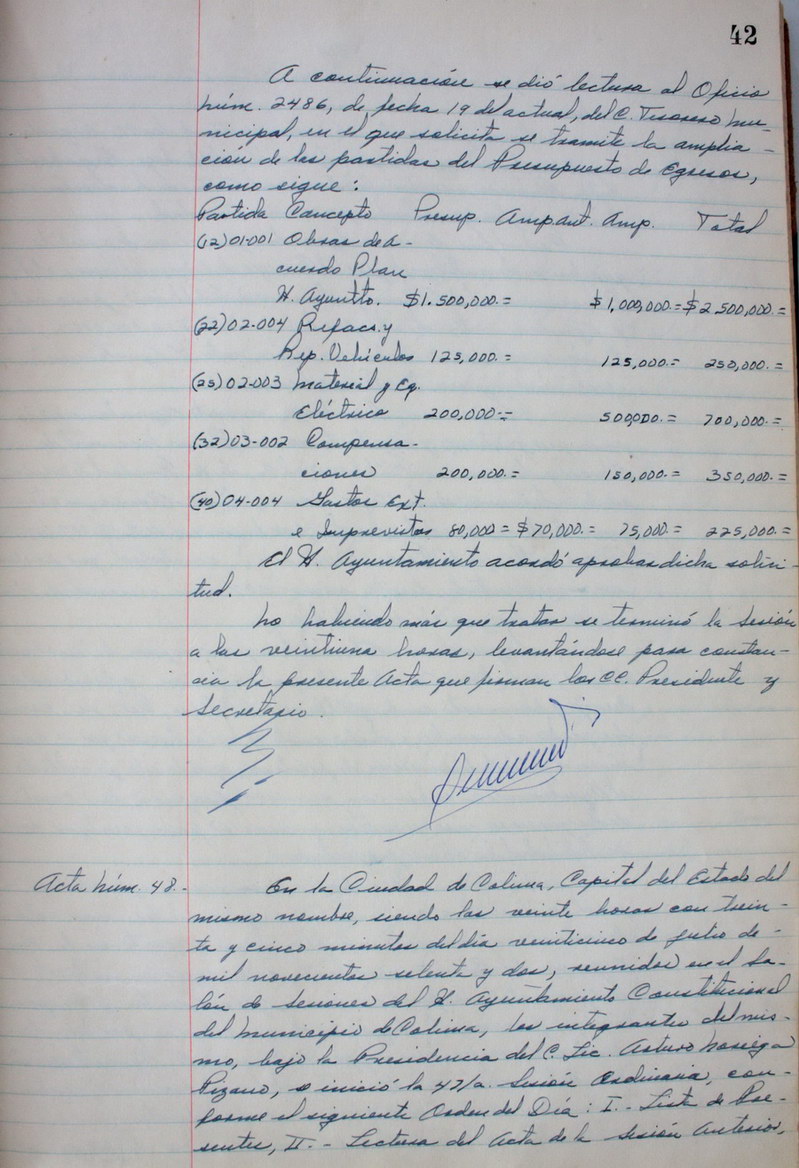 42
A continuación se dió lectura al Oficio
Núm. 2486, de fecha 19 del actual, del C. Tesorero Mu-
nicipal, en el que solicita se tramite la amplia-
ción de las partidas del Presupuesto de Egresos,
como sigue:
Partida Concepto Presup. Amp.ant. Amp. Total
(12)01-001 Obras de A-
cuerdo Plan
H. Ayuntto. $1.500,000.= $1,000,000.= $2.500,000.=
(22)02-004 Refacs. y
Rep. Vehículos 125,000.= 125,000.= 250,000.=
(25)02-003 Material y Eq.
Eléctrico 200,000.= 500,000.= 700,000.=
(32)03-002 Compensa-
ciones 200,000.= 150,000.= 350,000.=
(40)04-004 Gastos Ext.
e Imprevistos 80,000= $70,000.= 75,000.= 225,000.=
El H. Ayuntamiento acordó aprobar dicha solici-
tud.
No habiendo más que tratar se terminó la Sesión
a las veintiuna horas, levantándose para constan-
cia la presente Acta que firman los CC. Presidente y
Secretario.
Acta Núm. 48.-
En la Ciudad de Colima, Capital del Estado del
mismo nombre, siendo las veinte horas con trein-
ta y cinco minutos del día veinticinco de julio de-
mil novecientos setenta y dos, reunidos en el Sa-
lón de Sesiones del H. Ayuntamiento Constitucional
del Municipio de Colima, los integrantes del mis-
mo, bajo la Presidencia del C. Lic. Arturo Noriega
Pizano, se inició la 47/a. Sesión Ordinaria, con-
forme el siguiente Orden del Día: I.- Lista de Pre-
sentes, II.- Lectura del Acta de la Sesión Anterior,